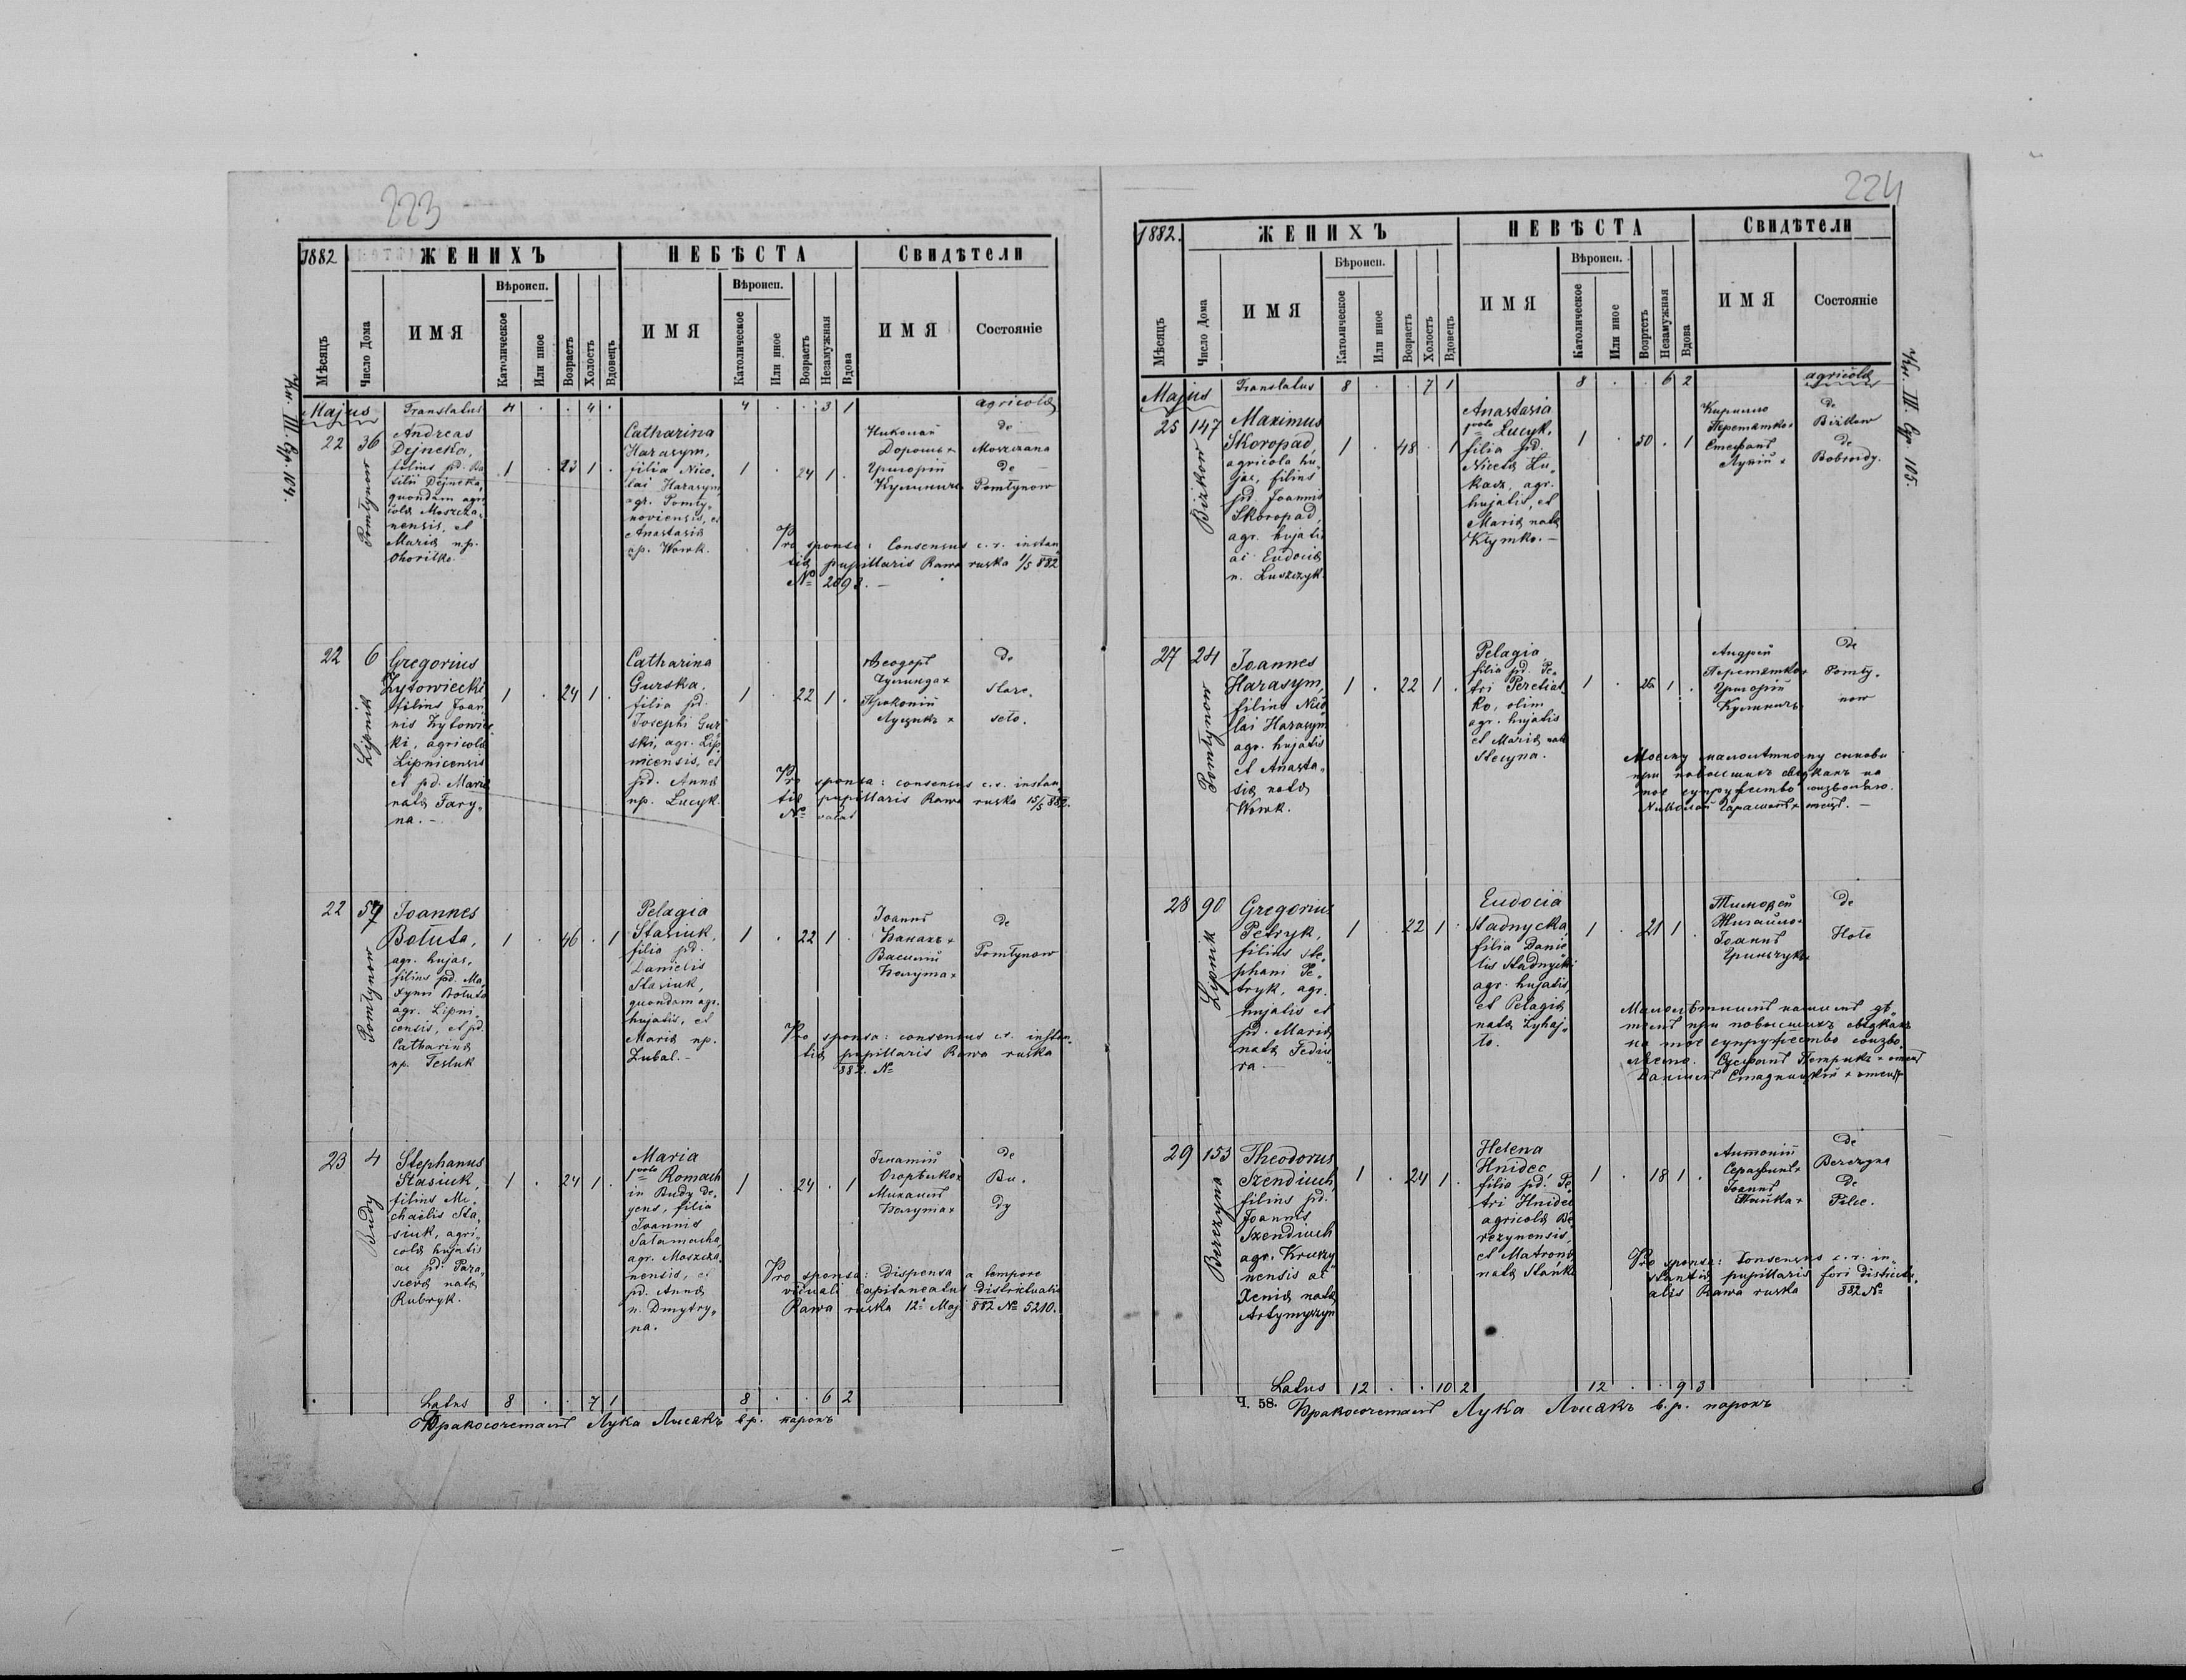 223
1882
ЖЕНИХЪ
НЕБѢСТА
Свидѣтели
Мѣсяцъ
Число Дома
ИМЯ
Вѣроисп.
Католическое
Или иное
Возрастъ
Холостъ
Вдовецъ
ИМЯ
Вѣроисп.
Католическое
Или иное
Возрастъ
Незамужная
Вдова
ИМЯ
Состояніе
Кн. III. Стр. 104.
Majus Translatus 4 . . 4 . 4 . . 3 1 agricolæ
22 36
Pomłynow
Andreas
Dejneka,
filius pd. Ba
silii Dejneka,
quondam agri
colæ Moszcza„
nensis, et
Mariæ n.p.
Ohoritko.
1 . 23 1 .
Catharina
Harasym,
filia Nico„
lai Harasym
agr. Pomły„
noviensis, et
Anastasiæ
np. Wowk.
1 . 24 1 .
Николай
Дорошъ +
Григорій
Кулиничъ
de
Moszczana
de
Pomłynow
Pro sponso: Consensus c.r. instan
tiæ pupillaris Rawa ruska 1/5 882
No 2093. —
22 6
Lipnik
Gregorius
Żytowiecki
filius Joan
nis Żytowiec
ki, agricolæ
Lipnicensis
et pd. Mariæ
natæ Tary„
na. —
1 . 24 1 .
Catharina
Gurska,
filia pd.
Josephi Gur
ski, agr. Lip
nicensis, et
pd. Annæ
np. Lucyk.
1 . 22 1 .
Ѳеодоръ
Чулинда +
Прокопій
Луцикъ +
de
Stare.
seło.
Pro sponsa: consensus c.r. instan„
tiæ pupillaris Rawa ruska 15/5 882.
No
22 57
Pomłynow
Joannes
Bołuta,
agr. hujas,
filius pd. Ma
xymi Bołuta
agr. Lipni„
censis, et pd.
Catharinæ
np. Tesluk
1 . 46 . 1
Pelagia
Stasiuk,
filia pd.
Danielis
Stasiuk,
quondam agr.
hujatis, et
Mariæ np.
Zubal. —
1 . 22 1 .
Іоаннъ
Банахъ +
Василій
Болута +
de
Pomłynow
Pro sponsa: consensus c.r. instan„
tiæ pupillaris Rawa ruska
882. No
23 4
Budy
Stephanus
Stasiuk,
filius Mi„
chaelis Sta„
siuk, agri„
colæ hujatis
ac pd. Para„
scevæ natæ
Rubryk.
1 . 24 1 .
Maria
1voto Romach
in Budy de„
gens, filia
Joannis
Sałamacha,
agr. Moszcza
nensis, et
pd. Annæ
n. Dmytry„
na.
1 . 24 . 1
Игнатій
Михаилъ
Болута +
de
Bu„
dy
Pro sponsa: Dispensa a tempore
viduali Capitaneatus Distriktualis
Rawa ruska 12a Maj 882 No 5210.
Latus 8 . . 7 1 8 . . 6 2
Бракосочеталъ Лука Лисакъ в.р. парохъ
224
1882.
ЖЕНИХЪ
НЕВѢСТА
Свидѣтели
Мѣсяцъ
Число Дома
ИМЯ
Бѣроисп.
Католическое
Или иное
Возрастъ
Холостъ
Вдовецъ
ИМЯ
Вѣроисп.
Католическое
Или иное
Возртетъ
Незамужная
Вдова
ИМЯ
Состояніе
Кн. III. Стр. 105.
Majus Translatus 8 . . 7 1 8 . . 6 2 agricolæ
25 147
Birkow
Maximus
Skoropad,
agricola hu„
jas, filius
pd. Joannis
Skoropad,
agr. hujatis
ac Eudociæ
n. Łuszczyk.
1 . 48 . 1
Anastasia
1voto Lucyk,
filia pd.
Nicetæ Łu„
kasz, agr.
hujatis, et
Mariæ natæ
Kłymko. —
1 . 30 . 1
Кирилло
Перетятко +
Стефанъ
Лукій +
de
Birkow
de
Bobroidy.
27 24
Pomłynow
Joannes
Harasym,
filius Nico„
lai Harasym
agr. hujatis
et Anasta„
siæ natæ
Wowk.
1 . 22 1 .
Pelagia
filia pd. Pe„
tri Peretiat
ko, olim
agr. hujatis
et Mariæ natæ
Stecyna.
1 . 26 1 .
Андрей
Перетятко +
Григорій
Кулиничъ
de
Pomły„
now
Моему малолѣтному синови
при повысшихъ свѣдкахъ на
тое супружество соизволяю.
Николай Гарасимъ + отецъ. —
28 90
Lipnik
Gregorius
Petryk,
filius Ste„
phani Pe„
tryk, agr.
hujatis et
pd. Mariæ
natæ Fediu„
ra. —
1 . 22 1 .
Eudocia
Stadnycka
filia Danie
lis Stadnycki
agr. hujatis,
et Pelagiæ
natæ Zyhaj„
to.
1 . 21 1 .
Тимофей
Жигайло +
Іоаннъ
Гринчукъ
de
Hołe
Малолѣтнимъ нашимъ дѣ„
темъ при повысшихъ свѣдкахъ
на тое супружество соизво„
ляемо. Стефанъ Петрикъ + отецъ
Даніилъ Стадницкій + отецъ
29 153
Berezyna
Theodorus
Szendiuch,
filius pd.
Joannis
Szendiuch
agr. Kruszy„
nensis ac
Xeniæ natæ
Artymyszyn
1 . 24 1 .
Helena
Hnidec,
filia pd. Pe„
tri Hnidec
agricolæ Be
rezynensis,
et Matronæ
natæ Stańko
1 . 18 1 .
Антоній
Серафинъ +
Іоаннъ
Тшика +
de
Berezyna
de
Pilec.
Pro sponsa: Consensus c.r. in„
stantiæ pupillaris fori districtu„
alis Rawa ruska 882 No
Latus 12 . . 10 2 12 . . 9 3
Ч. 58. Бракосочеталъ Лука Лисакъ в.р. парохъ